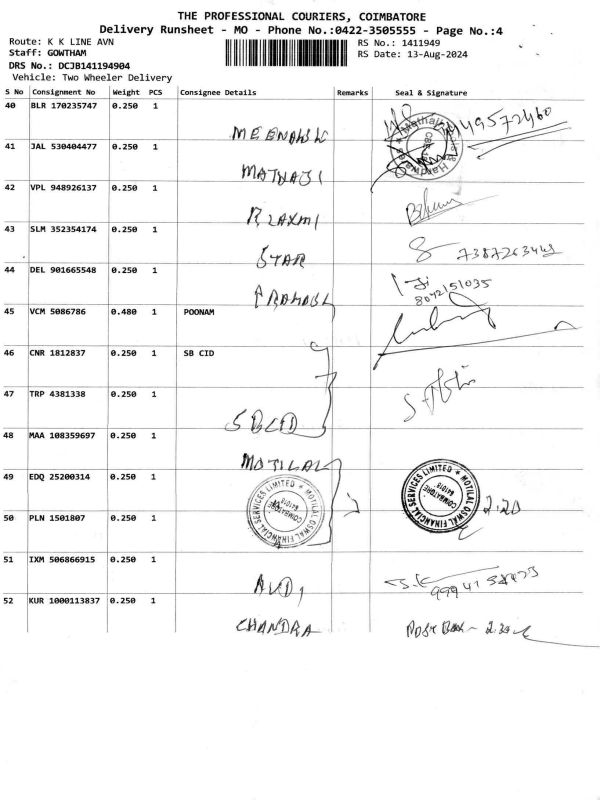 THE PROFESSIONAL COURIERS, COIMBATORE
Delivery Runsheet - MO - Phone No.:0422-3505555 - Page No.:4
Route: K K LINE AVN
RS No.: 1411949
Staff: GOWTHAM
RS Date: 13-Aug-2024
DRS No.: DCJB141194904
Vehicle: Two Wheeler Delivery
S No Consignment No Weight PCS Consignee Details Remarks Seal & Signature
40 BLR 170235747 0.250 1
41 JAL 530404477 0.250 1
MATHAJI
42 VPL 948926137 0.250 1
R LAXMI
43 SLM 352354174 0.250 1
STAR
44 DEL 901665548 0.250 1
8072151035
45 VCM 5086786 0.480 1 POONAM
46 CNR 1812837 0.250 1 SB CID
47 TRP 4381338 0.250 1
SBCID
48 MAA 108359697 0.250 1
MOTILAL
49 EDQ 25200314 0.250 1
MOTILAL OSWAL FINANCIAL SERVICES LIMITED
COIMBATORE
641018
MOTILAL OSWAL FINANCIAL SERVICES LIMITED
COIMBATORE
641018
2.20
50 PLN 1501807 0.250 1
51 IXM 506866915 0.250 1
52 KUR 1000113837 0.250 1
CHANDRA
POST BOX - 2.30